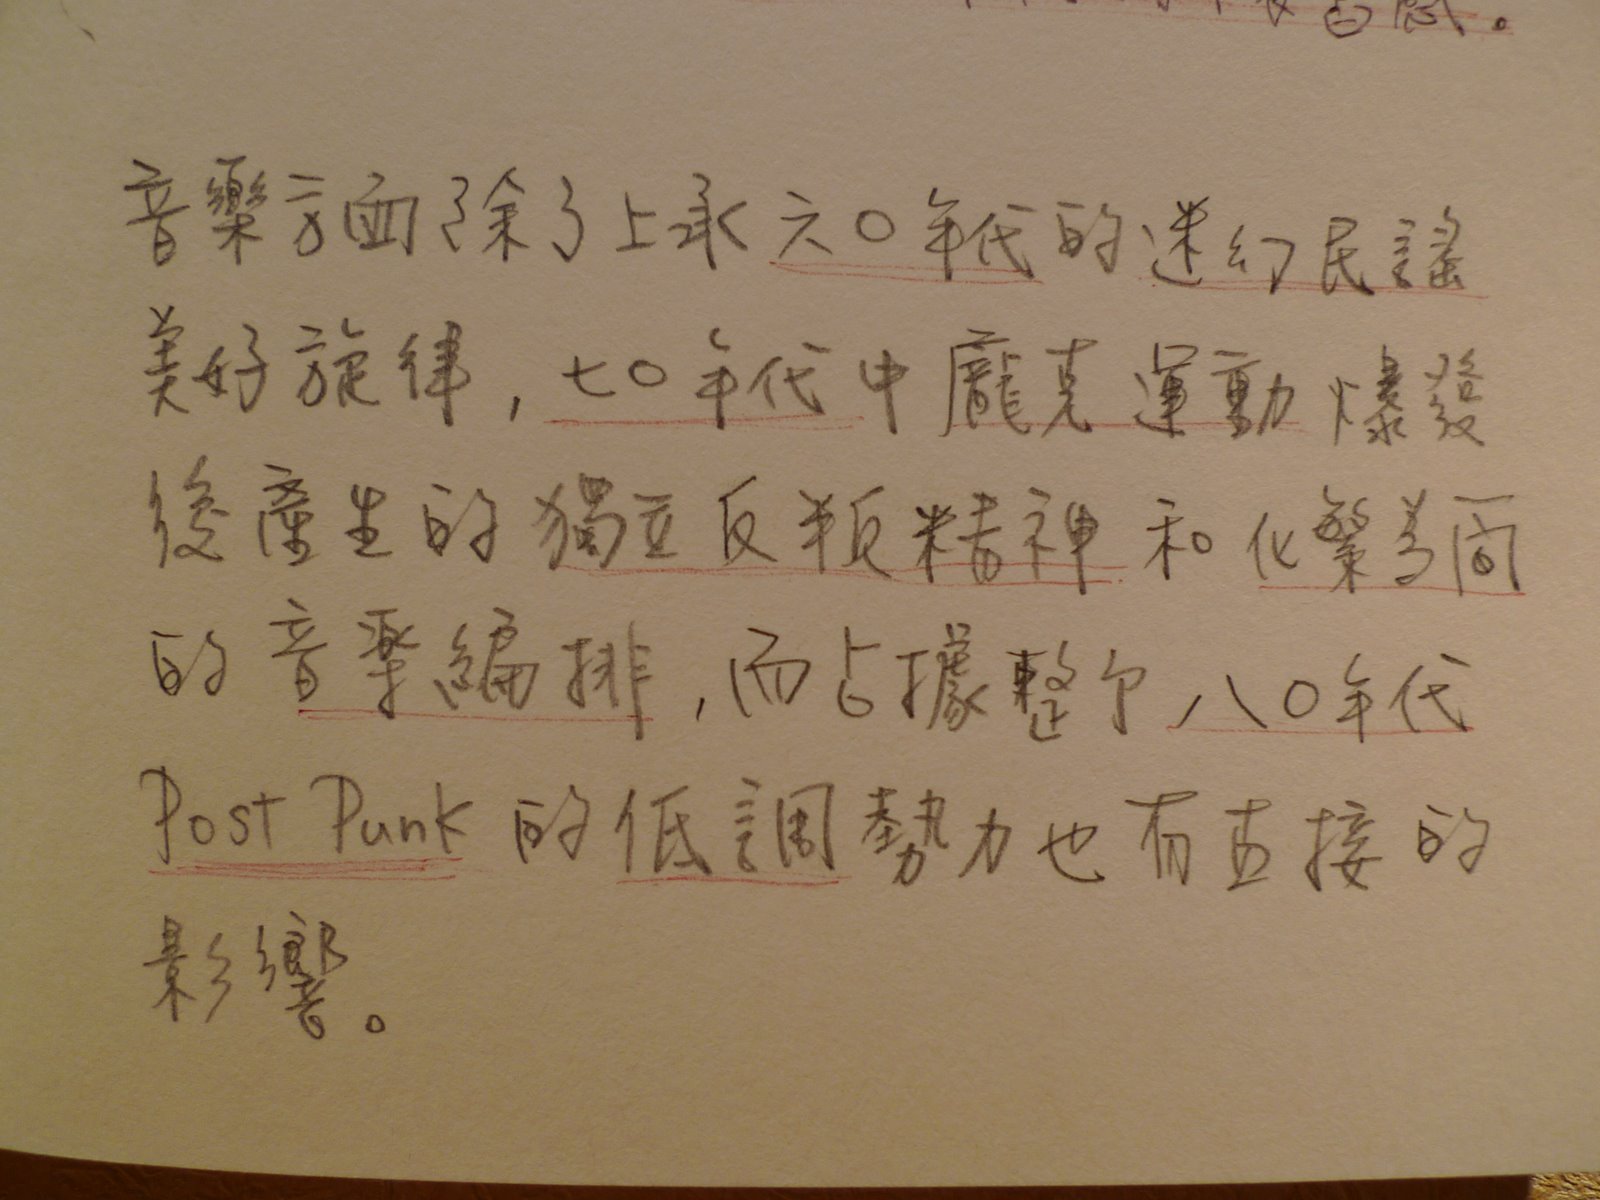 音樂方面除了上承六〇年代的迷幻民謠
美好旋律，七〇年代中龐克運動爆發
後產生的獨立反叛精神和化繁為簡
的音樂編排，而占據整个八〇年代
Post Punk 的低調勢力也有直接的
影響。